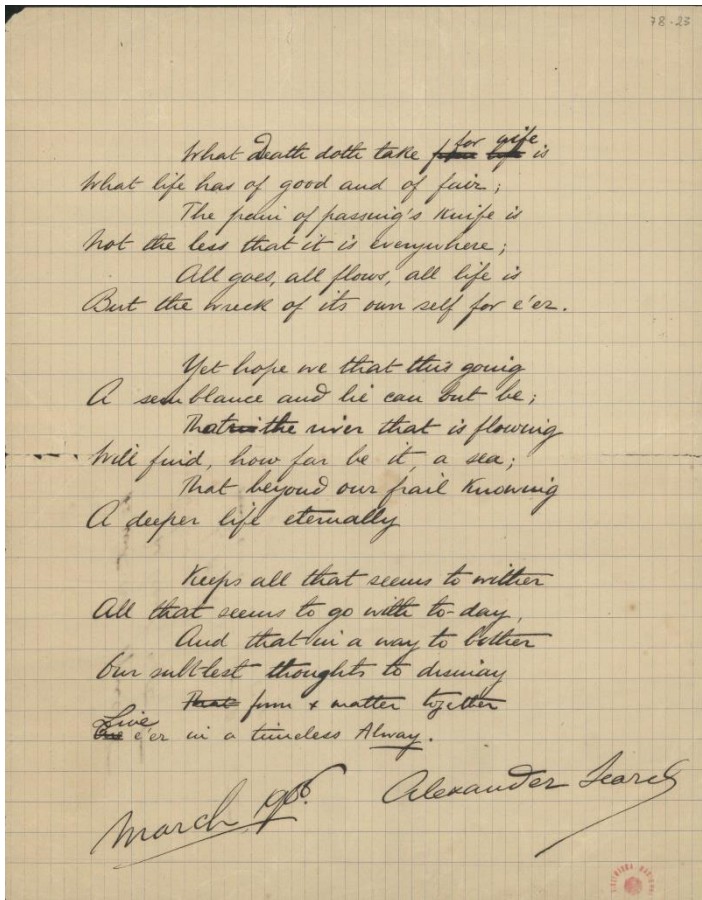 78-23
What Death doth take for wife is
What life has of good and of fair;
The pain of passing's knife is
Not the less that it is everywhere;
All goes, all flows, all life is
But the wreck of its own self for e'er.
Yet hope we that this going
A semblance and lie can but be;
That the river that is flowing
Will find, how far be it, a sea;
That beyond our frail knowing
A deeper life eternally
Keeps all that seems to wither
All that seems to go with to-day,
And that in a way to bother
Our subtlest thoughts to dismay
form & matter together
Live e'er in a timeless Alway.
March 1906. Alexander Search